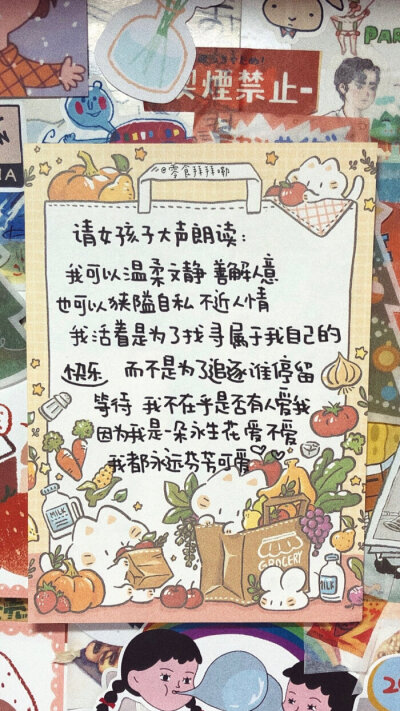 PAR
喫煙禁止
@零食拜拜嘞
请女孩子大声朗读：
我可以温柔文静 善解人意
也可以狭隘自私 不近人情
我活着是为了找寻属于我自己的
快乐 而不是为了追逐谁停留
等待 我不在乎是否有人爱我
因为我是一朵永生花 爱不爱
我都永远芬芳可爱
MILK
GROCERY
MILK